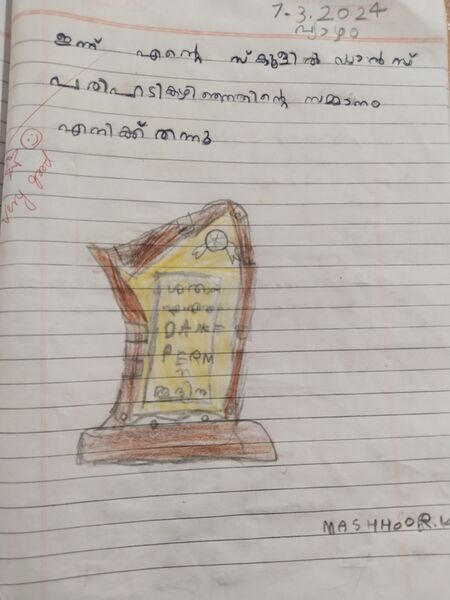 7-3.2024
വ്യാഴം
ഇന്ന് എന്റെ സ്കൂളിൽ ഡാൻസ്
പരിപാടികഴിഞ്ഞതിന്റെ സമ്മാനം
എനിക്ക് തന്നു
very good
DANCE
PERM
MASHHOOR.K